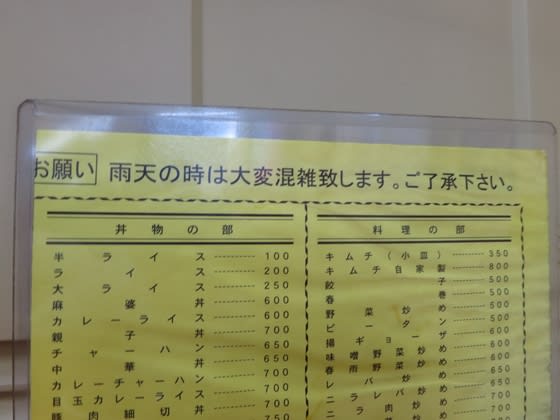 お願い 雨天の時は大変混雑致します。ご了承下さい。
丼物の部
半ライス 100
ライス 200
大ライス 250
麻婆丼 600
カレーライス 600
親子丼 700
チャーハン 650
中華丼 650
カレーチャーハン 700
目玉カレーライス 700
豚肉細切丼 750
料理の部
キムチ(小皿) 350
キムチ自家製 800
餃子 500
春巻 500
野菜炒め 600
ピータン 500
揚ギョーザ 500
味噌野菜炒め 600
春雨野菜炒め 650
レバ炒め 650
ニラレバ炒め
ニラ肉炒め